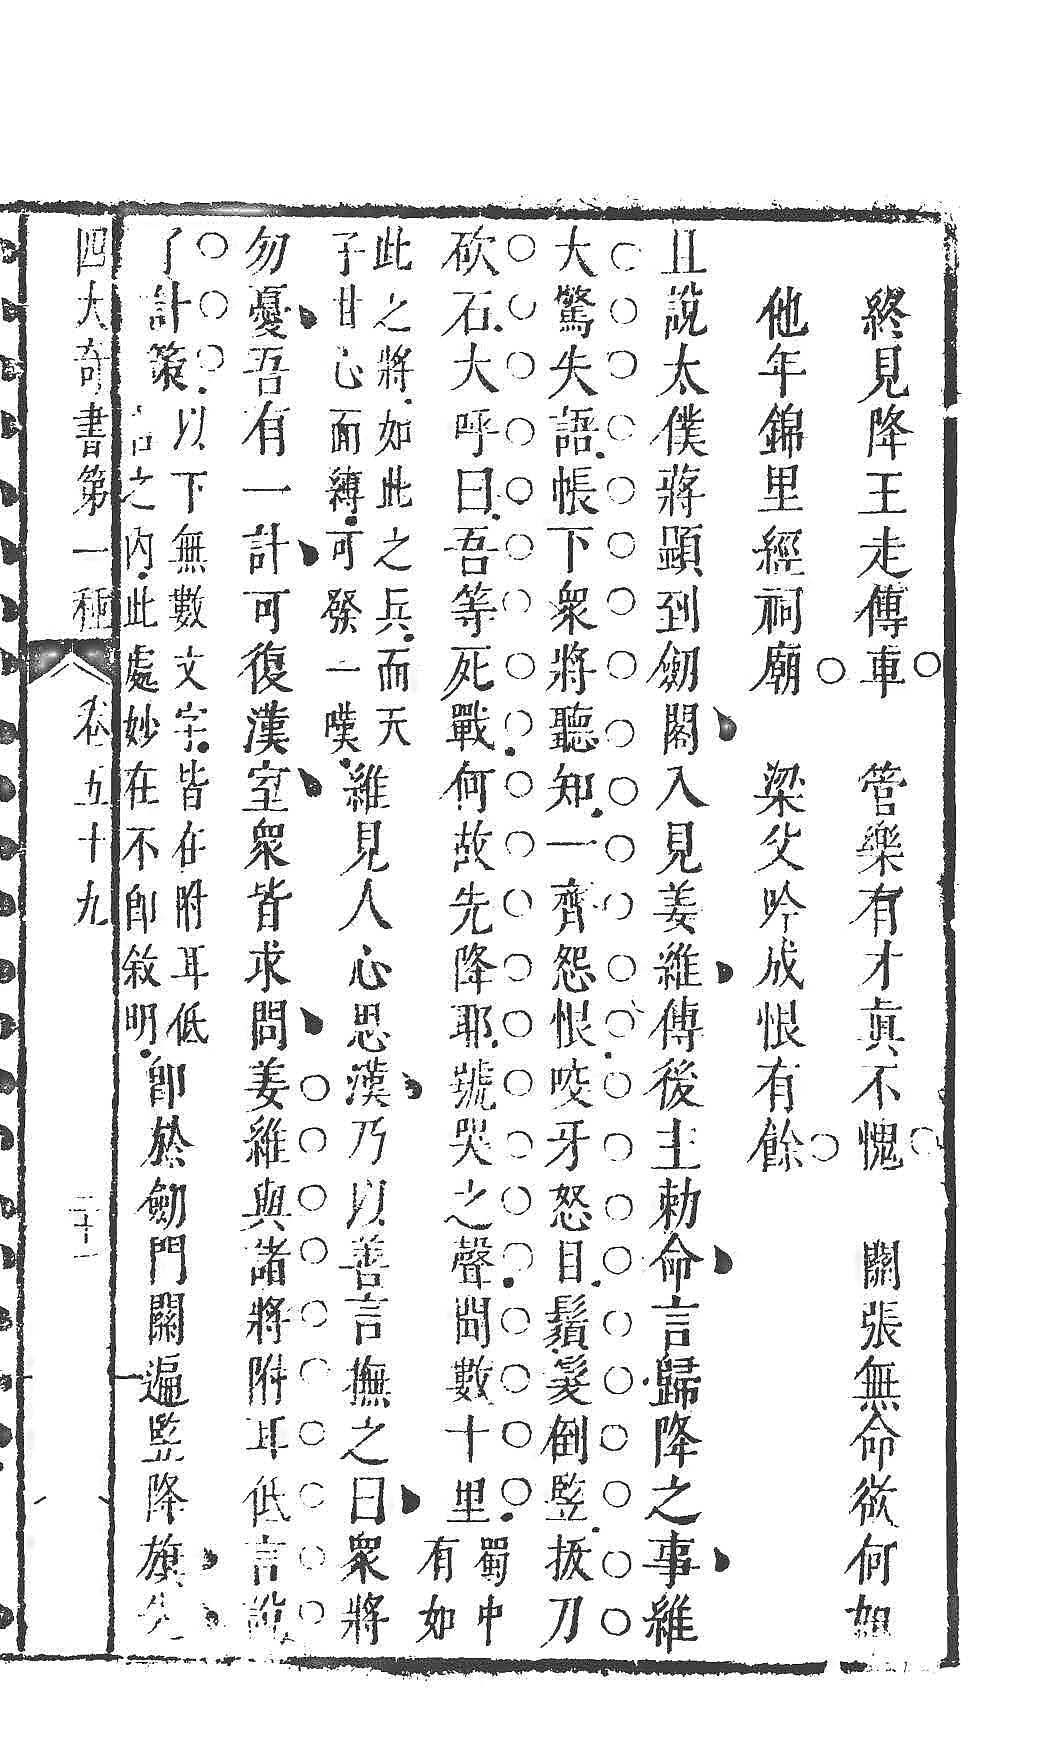 終見降王走傳車　管樂有才眞不愧　關張無命欲何如
他年錦里經祠廟　梁父吟成恨有餘
且說太僕蔣顯到劒閣入見姜維傳後主勅命言歸降之事維
大驚失語帳下衆將聽知一齊怨恨咬牙怒目鬚髮倒豎拔刀
砍石大呼曰吾等死戰何故先降耶號哭之聲聞數十里蜀中有如
此之將如此之兵而天子甘心面縛可發一嘆維見人心思漢乃以善言撫之曰衆將
勿憂吾有一計可復漢室衆皆求問姜維與諸將附耳低言說
了計策以下無數文字皆在附耳低言之內此處妙在不卽敘明卽於劒門關遍豎降旗先
四大奇書第一種　卷五十九　二十一